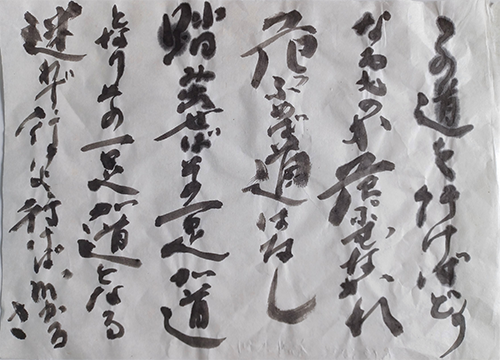 この道を行けばどう
なるものか危ぶむなかれ
危ぶめば道はなし
踏み出せばその一足が道
となりその一足が道となる
迷わず行けよ行けばわかるさ